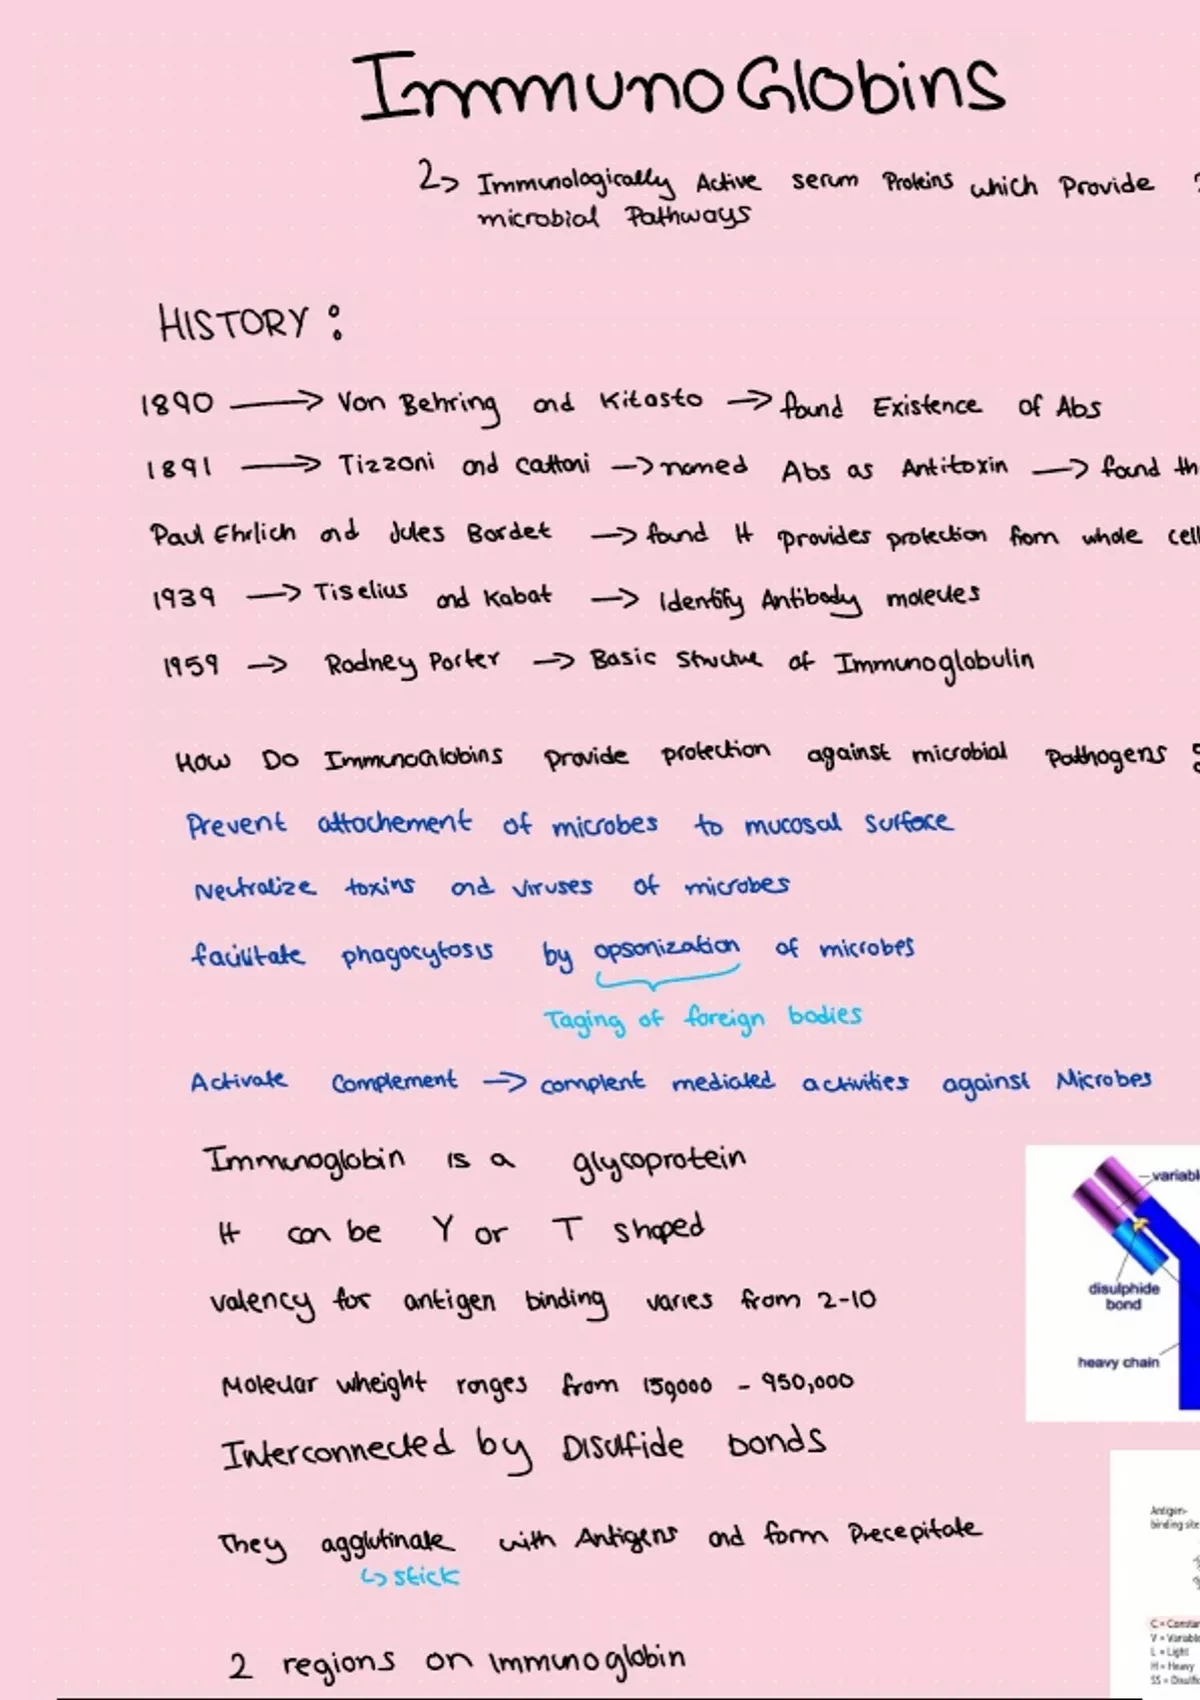 ImmunoGlobins
2> Immunologically Active serum Proteins which Provide
microbial Pathways
HISTORY :
1890 → Von Behring and Kitasto → found Existence of Abs
1891 → Tizzoni and Cattoni → named Abs as Antitoxin → found th
Paul Ehrlich and Jules Bordet → found It provides protection from whole cell
1939 → Tiselius and Kabat → Identify Antibody molecules
1959 → Rodney Porter → Basic Structure of Immunoglobulin
How Do ImmunoGlobins Provide protection against microbial Pathogens
Prevent attachement of microbes to mucosal surface
Neutralize toxins and viruses of microbes
facilitate phagocytosis by opsonization of microbes
Taging of foreign bodies
Activate Complement → complent mediated activities against Microbes
Immunoglobin is a glycoprotein
It can be Y or T shaped
valency for antigen binding varies from 2-10
variabl
disulphide
bond
heavy chain
Molecular wheight ranges from - 950,000
Interconnected by Disulfide bonds
They agglutinate with Antigens and form Precepitate
↳ stick
Antigen-
binding site
C = Constan
V = Variable
L = Light
H = Heavy
SS = Disulfi
2 regions on immunoglobin